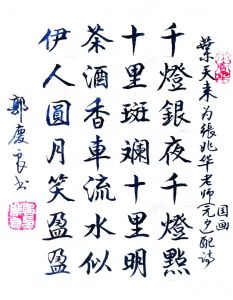 葉天来为張兆华老师国画(元夕)配诗
千燈銀夜千燈點
十里斑斕十里明
茶酒香車流水似
伊人圓月笑盈盈
郭慶良书